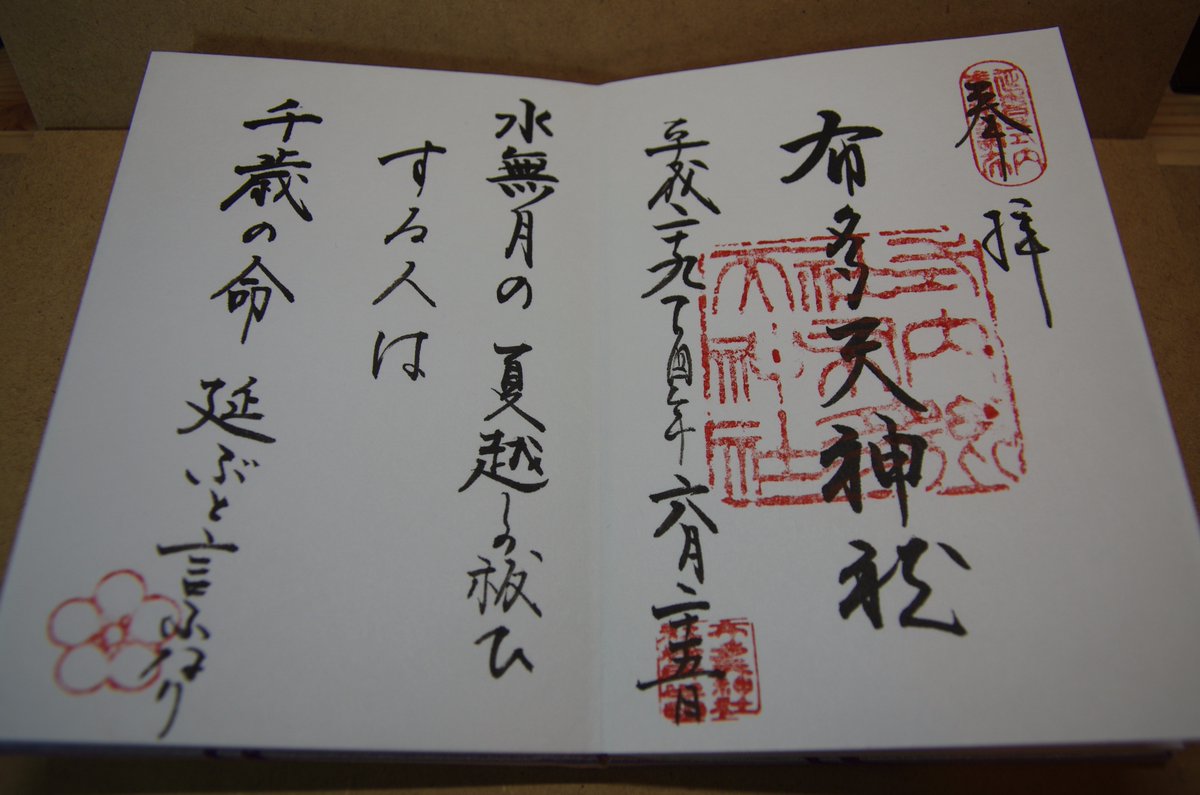 奉拝
布多天神社
平成二十九丁酉年 六月二十五日
水無月の 夏越しの祓ひ
する人は
千歳の命 延ぶと言ふなり